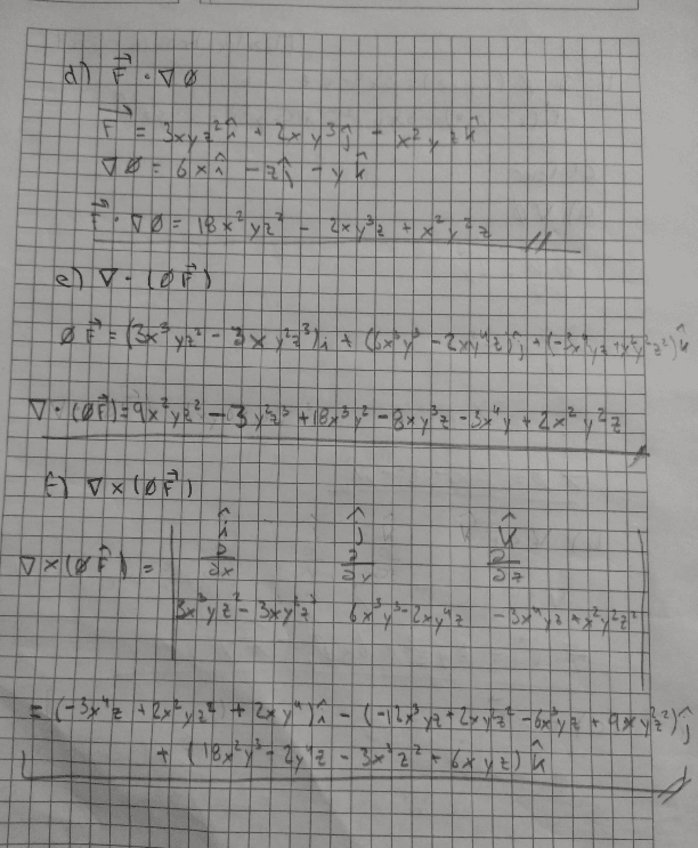 d) F⃗ · ∇Ø
F⃗ = 3xyz²î + 2xy³ĵ - x²yzk̂
∇Ø = 6xî - zĵ - yk̂
F⃗ · ∇Ø = 18x²yz² - 2xy³z + x²y²z //
e) ∇ · (ØF⃗)
ØF⃗ = (3x³yz² - 3xy²z³)i + (6x³y³ - 2xy⁴z)ĵ + (-3x⁴yz + x²y²z²)k̂
∇ · (ØF⃗) = 9x²yz² - 3y²z³ + 18x³y² - 8xy³z - 3x⁴y + 2x²y²z
f) ∇ × (ØF⃗)
î ĵ k̂
∇ × (ØF⃗) = | ∂/∂x ∂/∂y ∂/∂z |
3x³yz² - 3xy²z³ 6x³y³ - 2xy⁴z -3x⁴yz + x²y²z²
= (-3x⁴z + 2x²yz² + 2xy⁴)î - (-12x³yz + 2xy²z² - 6x³yz + 9xy²z²)ĵ
+ (18x²y³ - 2y⁴z - 3x³z² + 6xyz)k̂